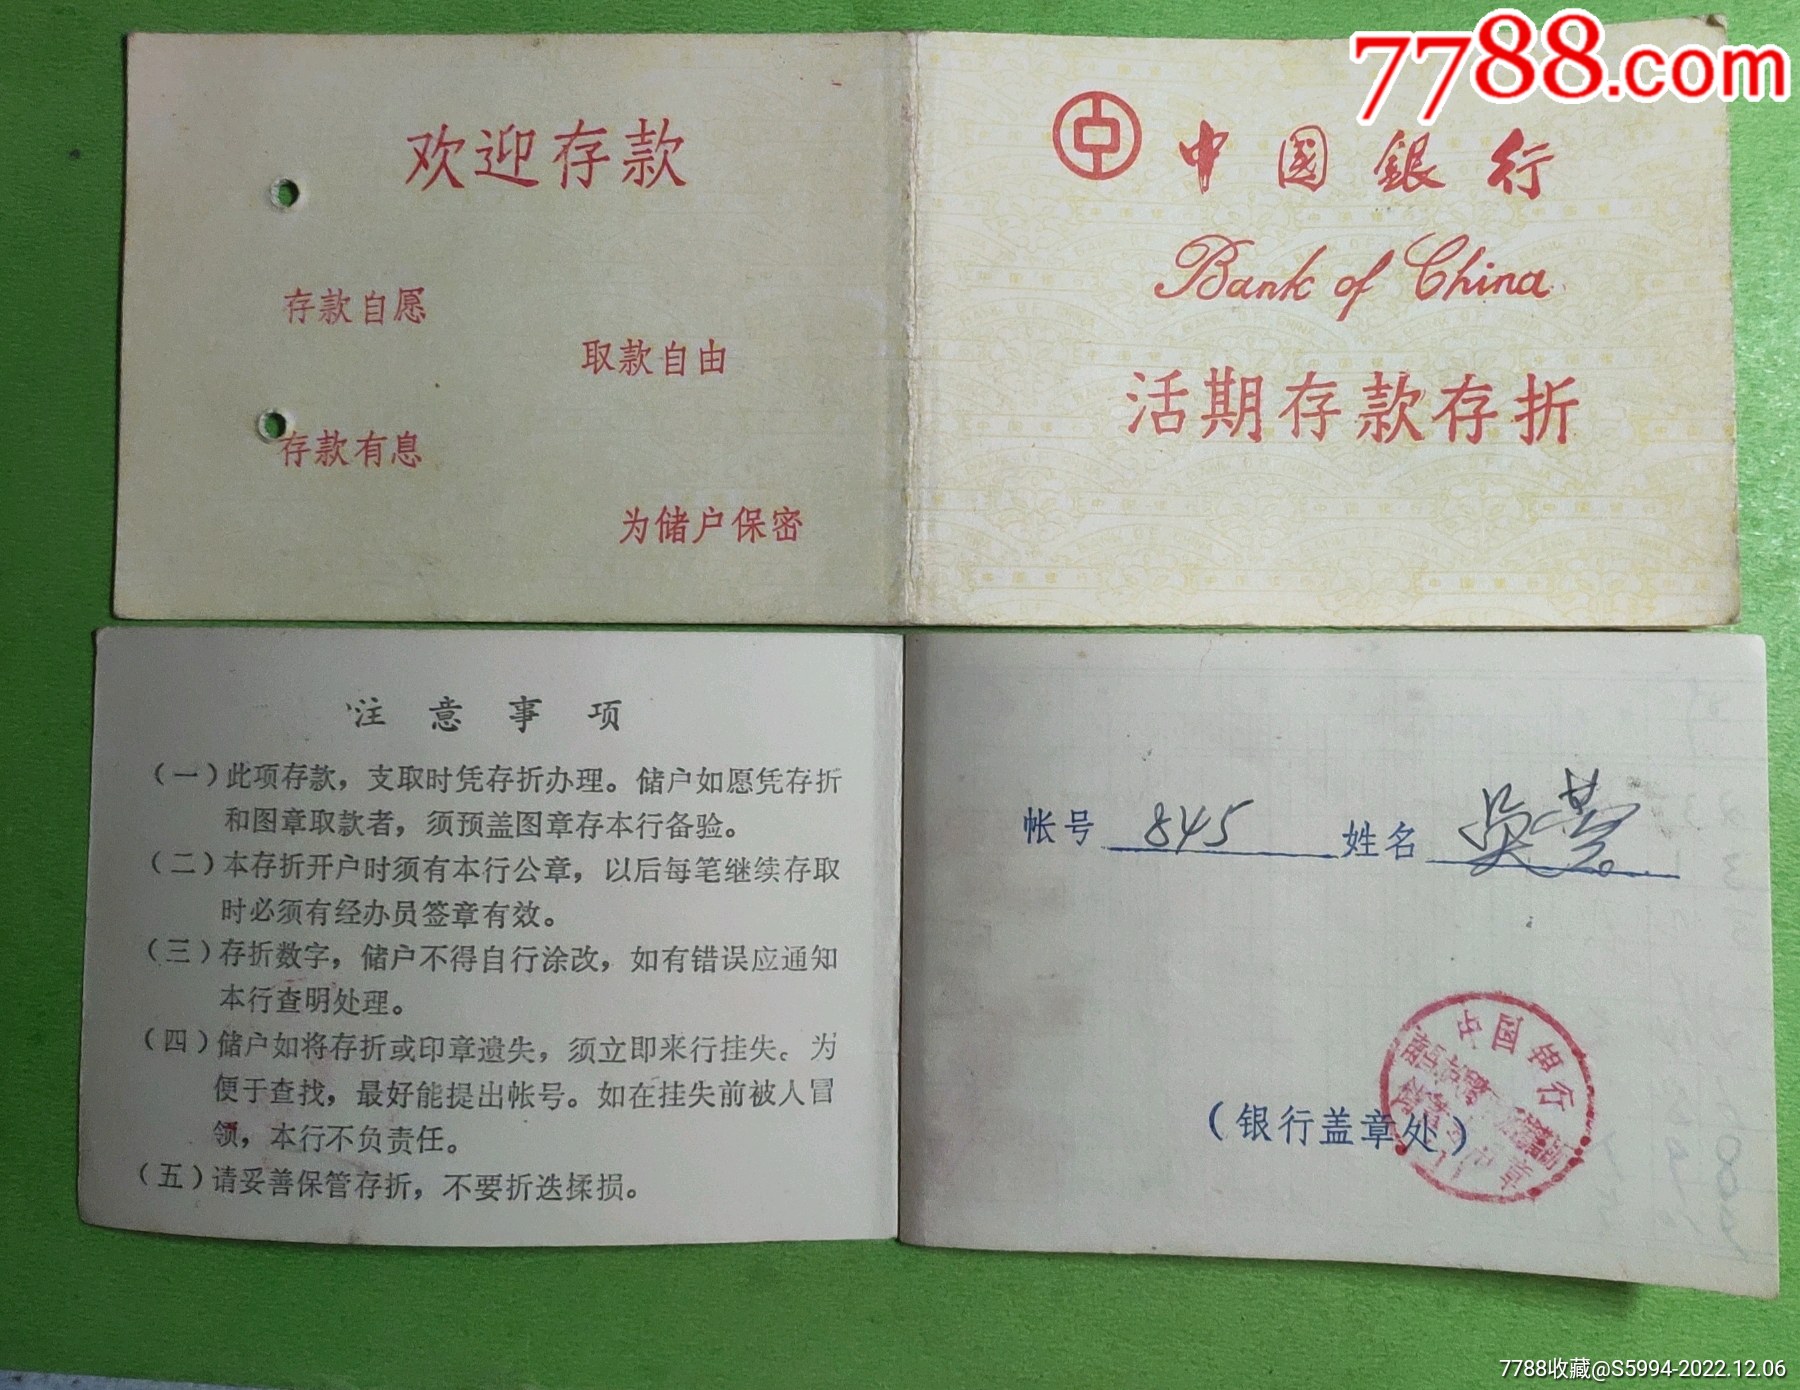 7788.com
欢迎存款
存款自愿
取款自由
存款有息
为储户保密
中國銀行
Bank of China
活期存款存折
注意事项
(一)此项存款，支取时凭存折办理。储户如愿凭存折
和图章取款者，须预盖图章存本行备验。
(二)本存折开户时须有本行公章，以后每笔继续存取
时必须有经办员签章有效。
(三)存折数字，储户不得自行涂改，如有错误应通知
本行查明处理。
(四)储户如将存折或印章遗失，须立即来行挂失。为
便于查找，最好能提出帐号。如在挂失前被人冒
领，本行不负责任。
(五)请妥善保管存折，不要折迭揉损。
帐号 845 姓名 吴
中国银行
(银行盖章处)
7788收藏@S5994-2022.12.06